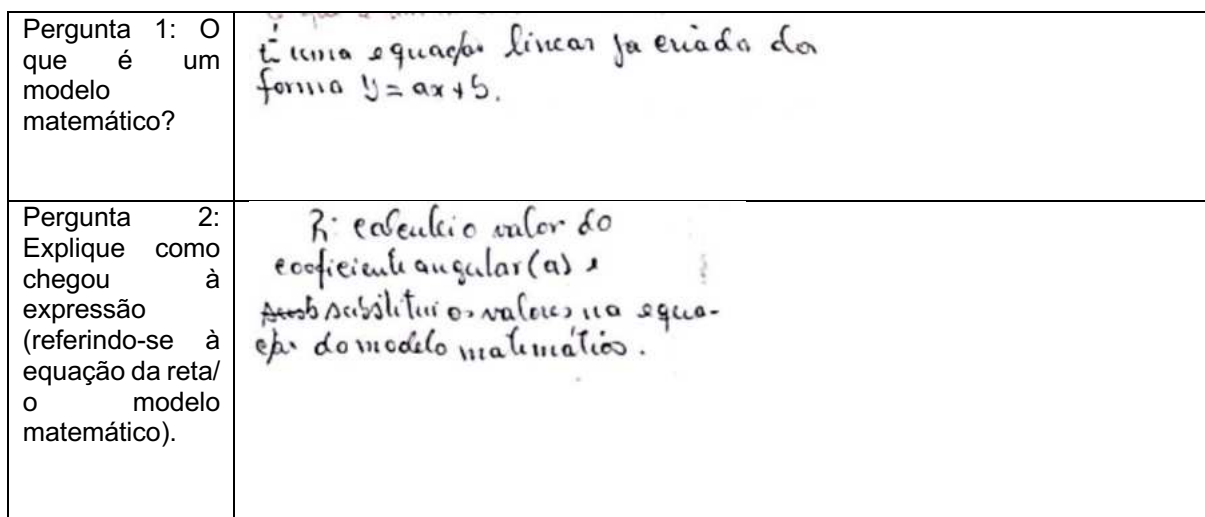 Pergunta 1: O
que é um
modelo
matemático?
É uma equação linear ja criada da
forma y = ax + b.
Pergunta 2:
Explique como
chegou à
expressão
(referindo-se à
equação da reta/
o modelo
matemático).
R: calculei o valor do
coeficiente angular (a) e
substitui os valores na equa-
ção do modelo matemático.